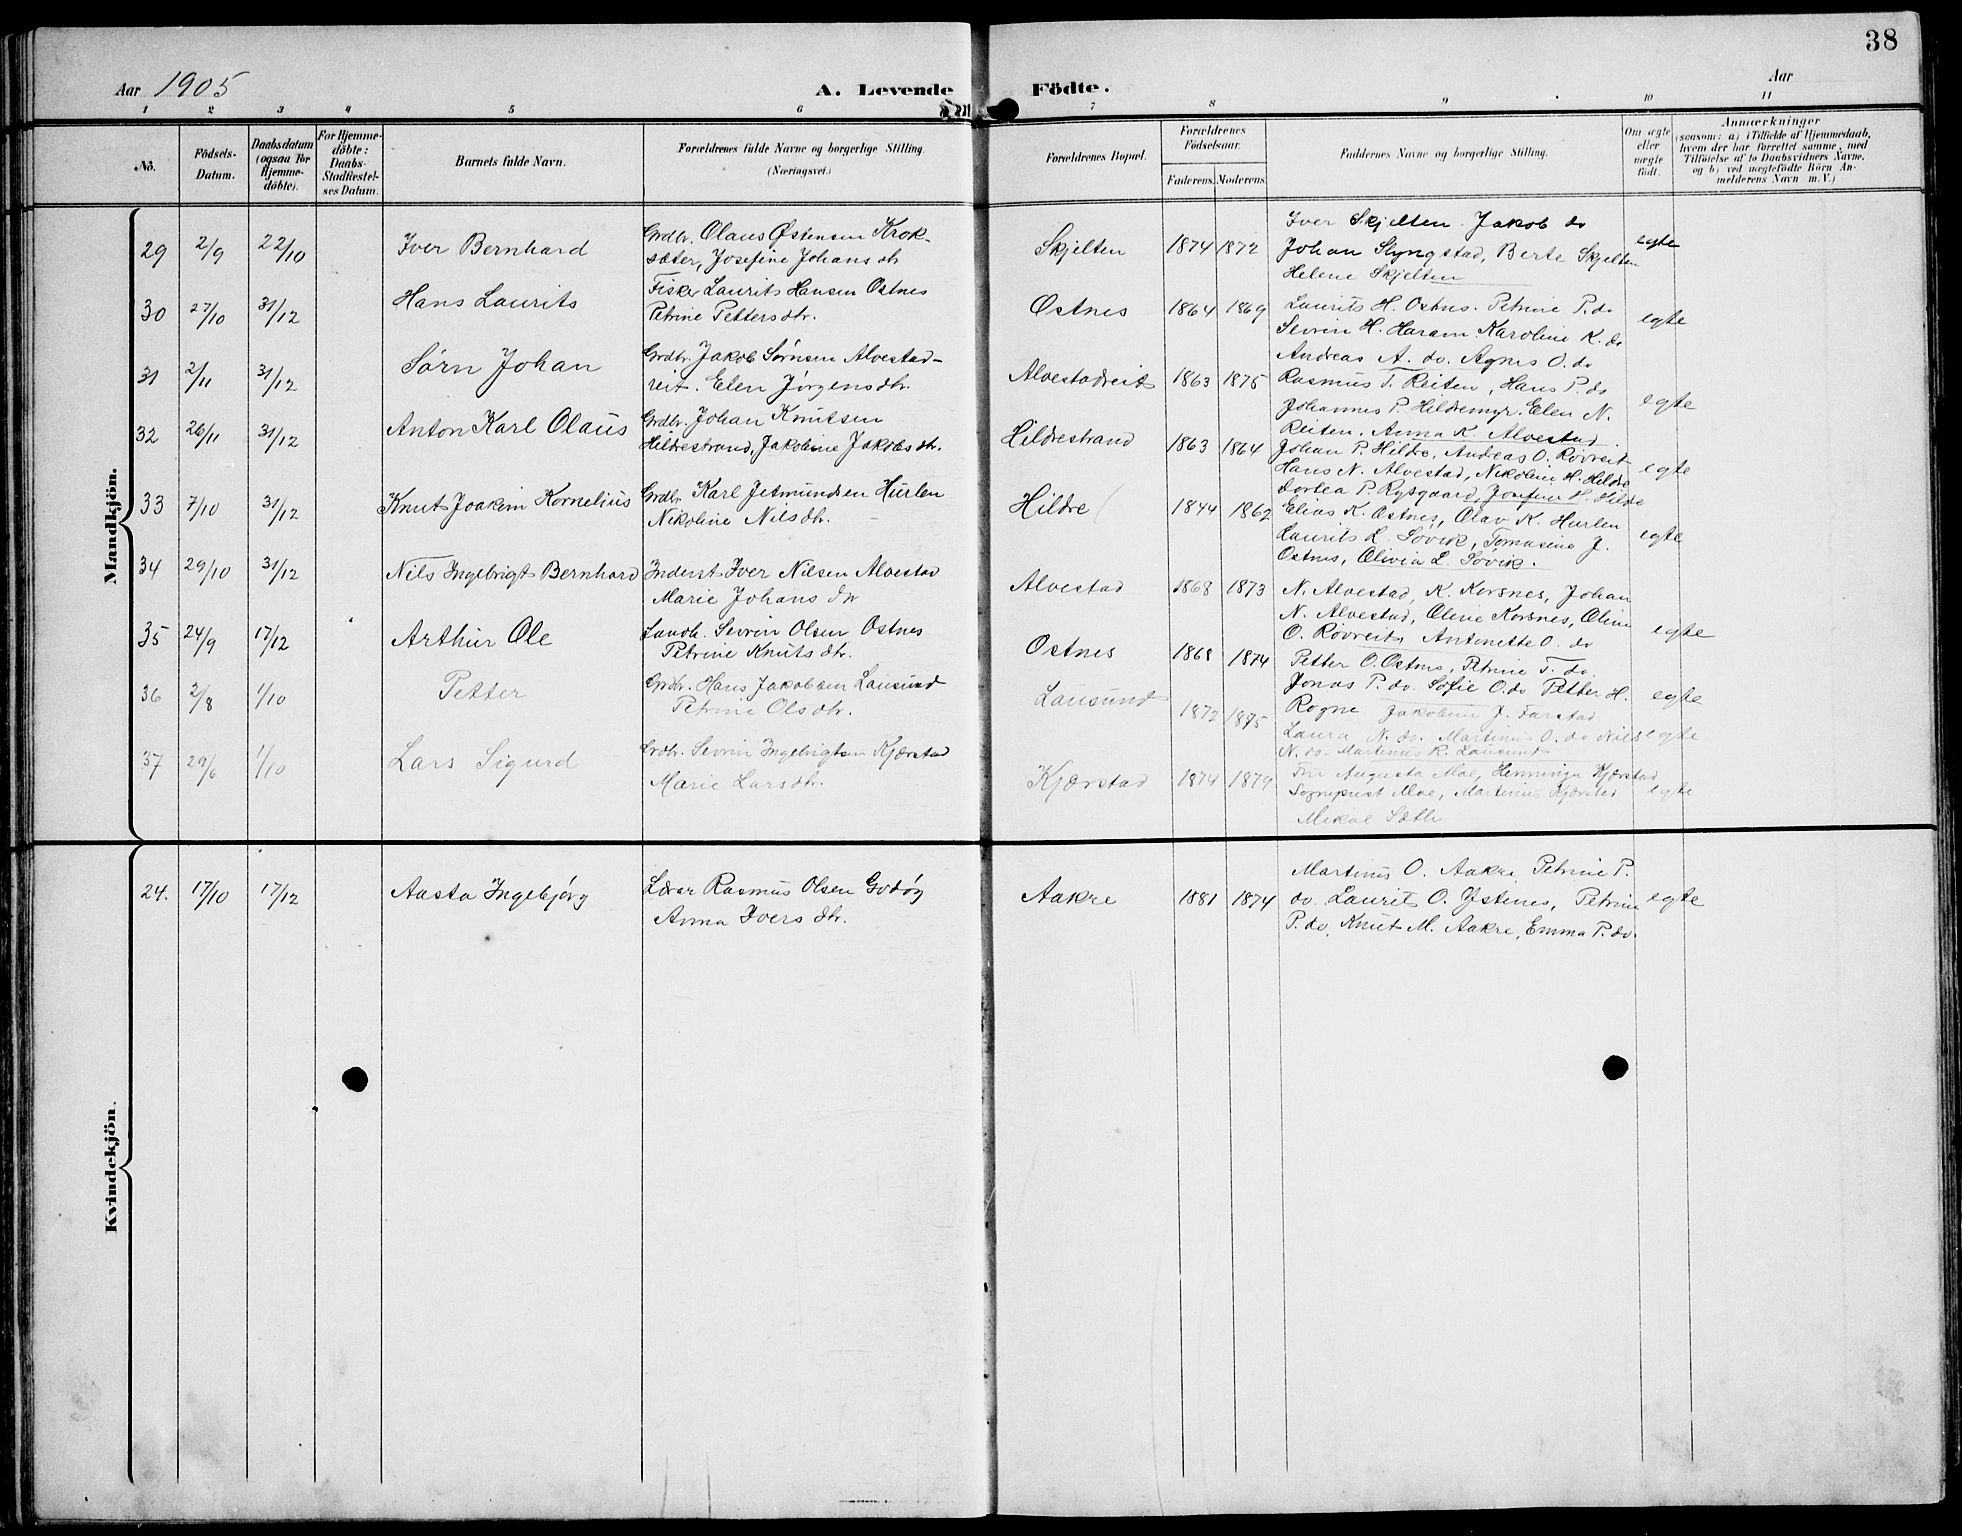 38
Aar 1905
A. Levende Födte.
Aar
1 2 3 4 5 6 7 8 9 10 11
No.
Födsels-Datum.
Daabsdatum (ogsaa for Hjemme-döbte).
For Hjemme-döbte: Daabs-Stadfæstel-ses Datum.
Barnets fulde Navn.
Forældrenes fulde Navne og borgerlige Stilling. (Næringsvei.)
Forældrenes Bopæl.
Forældrenes Födselsaar.
Faderens. Moderens.
Faddernes Navne og borgerlige Stilling.
Om ægte eller uægte født.
Anmærkninger
(saasom: a) i Tilfælde af Hjemmedaab,
hvem der har forrettet samme, med
Tilföielse af to Daabsvidners Navne.
og b) ved uægtefödte Börn An-
melderens Navn m. V.)
Mandkjön.
29 2/9 22/10 Iver Bernhard
Grdbr. Olaus Østensen Krok-
sæter, Josefine Johans dtr
Skjelten 1874 1872
Iver Skjelten. Jakob do
Johan Slyngstad, Berte Skjelten
Helene Skjelten
egte
30 27/10 31/12 Hans Laurits
Fisker Laurits Hansen Ostnes
Petrine Petters dtr.
Ostnes 1864 1869
Laurits H. Ostnes. Petrine P. do
Sevrin H. Haram. Karoline K. do
Andreas A. do. Agnes O. do
egte
31 2/11 31/12 Sørn Johan
Grdbr. Jakob Sørnsen Alvestad-
reit. Elen Jørgens dtr.
Alvestadreit 1863 1875
Rasmus T. Reiten, Hans P. do
Johannes P. Hildremyr. Elen N.
Reiten. Anna K. Alvestad.
egte
32 26/11 31/12 Anton Karl Olaus
Grdbr. Johan Knutsen
Hildrestrand, Jakobine Jakobs dtr.
Hildrestrand 1863 1864
Johan P. Hildre, Andreas O. Røvreit
Hans N. Alvestad, Nikoline H. Hildre
Dortea P. Rysgaard, Josefine H. Hildre
egte
33 7/10 31/12 Knut Joakim Kornelius
Grdbr. Karl Jetmundsen Hurlen
Nikoline Nils dtr.
Hildre 1844 1862
Elias K. Ostnes, Olav K. Hurlen
Laurits L. Søvik, Tomasine J.
Ostnes, Olivia L. Søvik.
egte
34 29/10 31/12 Nils Ingebrigt Bernhard
Inderst Iver Nilsen Alvestad
Marie Johans dtr
Alvestad 1868 1873
N. Alvestad, K. Korsnes, Johan
N. Alvestad, Oline Korsnes, Oline
O. Røvreit, Antonette O. do
egte
35 24/9 17/12 Arthur Ole
Landh. Sevrin Olsen Ostnes
Petrine Knuts dtr.
Ostnes 1868 1874
Petter O. Ostnes, Petrine T. do.
Jonas P. do. Sofie O. do Petter H.
Rogne Jakobine J. Farstad
egte
36 2/8 1/10 Petter
Grdbr. Hans Jakobsen Lausund
Petrine Ols dtr.
Lausund 1872 1875
Laura N. do. Martinus O. do Nils
N. do. Martinus R. Lausund
egte
37 29/6 1/10 Lars Sigurd
Grdbr. Sevrin Ingebrigtsen Kjærstad
Marie Lars dtr.
Kjærstad 1874 1879
Fru Augusta Moe, Henninga Kjærstad
Sogneprest Moe, Martinus Kjærstad
Mikal Sæth
egte
Kvindekjön.
24. 17/10 17/12 Aasta Ingebjørg
Lærer Rasmus Olsen Godøy
Anna Ivers dtr.
Aakre 1881 1874
Martinus O. Aakre, Petrine P.
do. Laurits O. Østenes, Petrine
P. do, Knut M. Aakre, Emma P. do.
egte